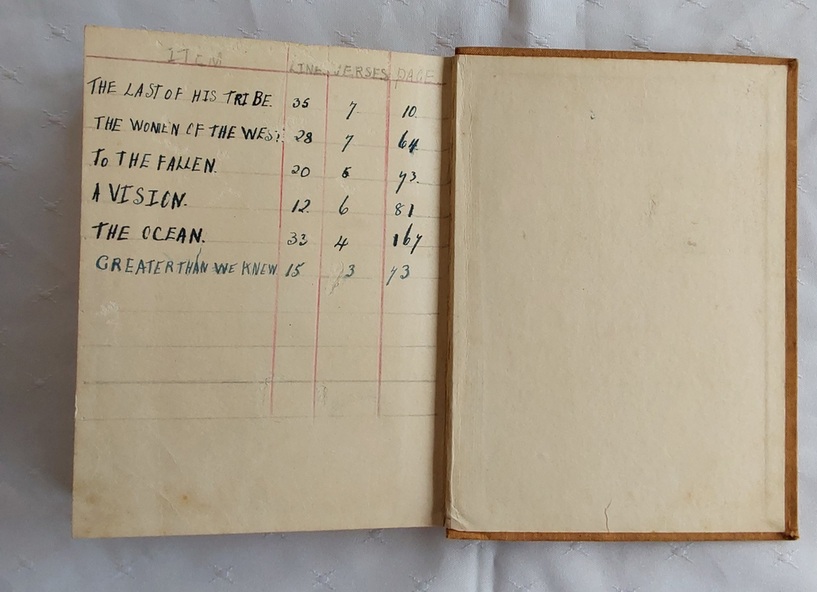 ITEM LINE VERSES PAGE
THE LAST OF HIS TRIBE. 35 7 10.
THE WOMEN OF THE WEST. 28 7 64
TO THE FALLEN. 20 5 73.
A VISION. 12. 6 81
THE OCEAN. 33 4 167
GREATER THAN WE KNEW 15 3 73